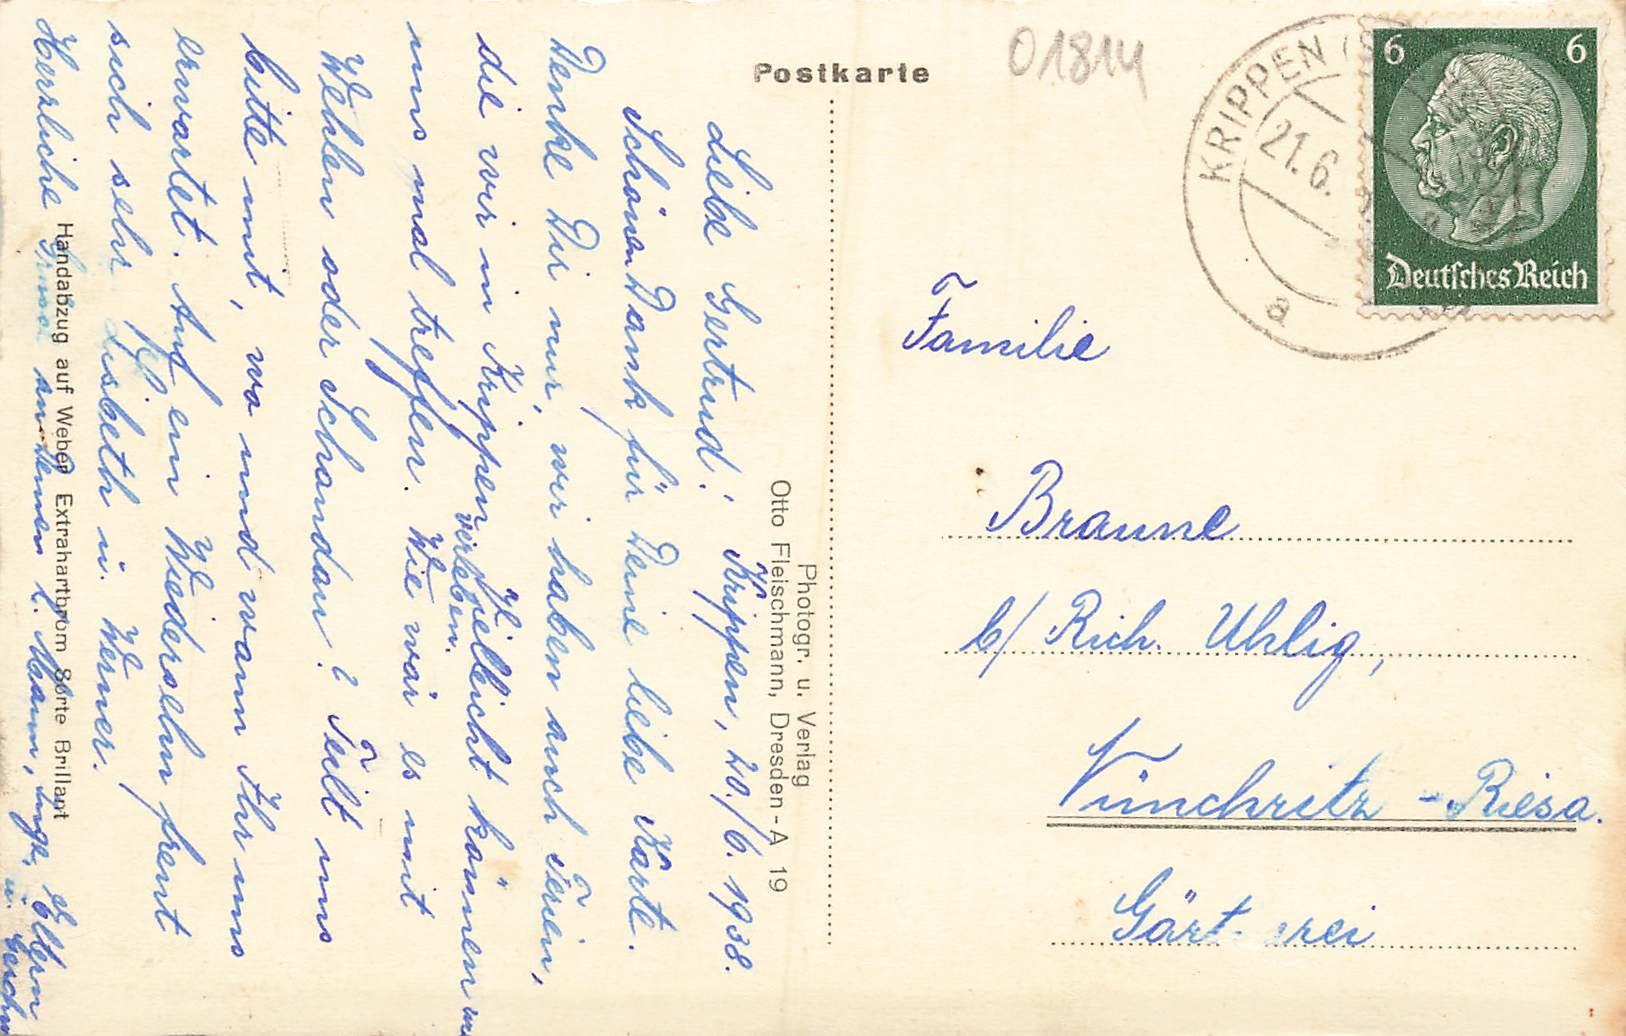 Postkarte
01814
KRIPPEN (S
21.6.
a
6 6
Deutsches Reich
Krippen, 20./6. 1938.
Liebe Gertrud!
Schönen Dank für Deine liebe Karte.
Denke Dir nur, wir haben auch Ferien,
die wir in Krippen verleben. Vielleicht können wir
uns mal treffen. Wie wär es mit
Wehlen oder Schandau? Teilt uns
bitte mit, wo und wann Ihr uns
erwartet. Auf ein Wiedersehn freut
sich sehr Lisbeth u. Werner.
Herzliche Grüsse an Deinen l. Mann, Inge, Eltern
u.
Photogr. u. Verlag
Otto Fleischmann, Dresden-A 19
Handabzug auf Weber Extrahartbrom Sorte Brillant
Familie
Braune
b/ Rich. Uhlig,
Nünchritz - Riesa.
Gärt rei